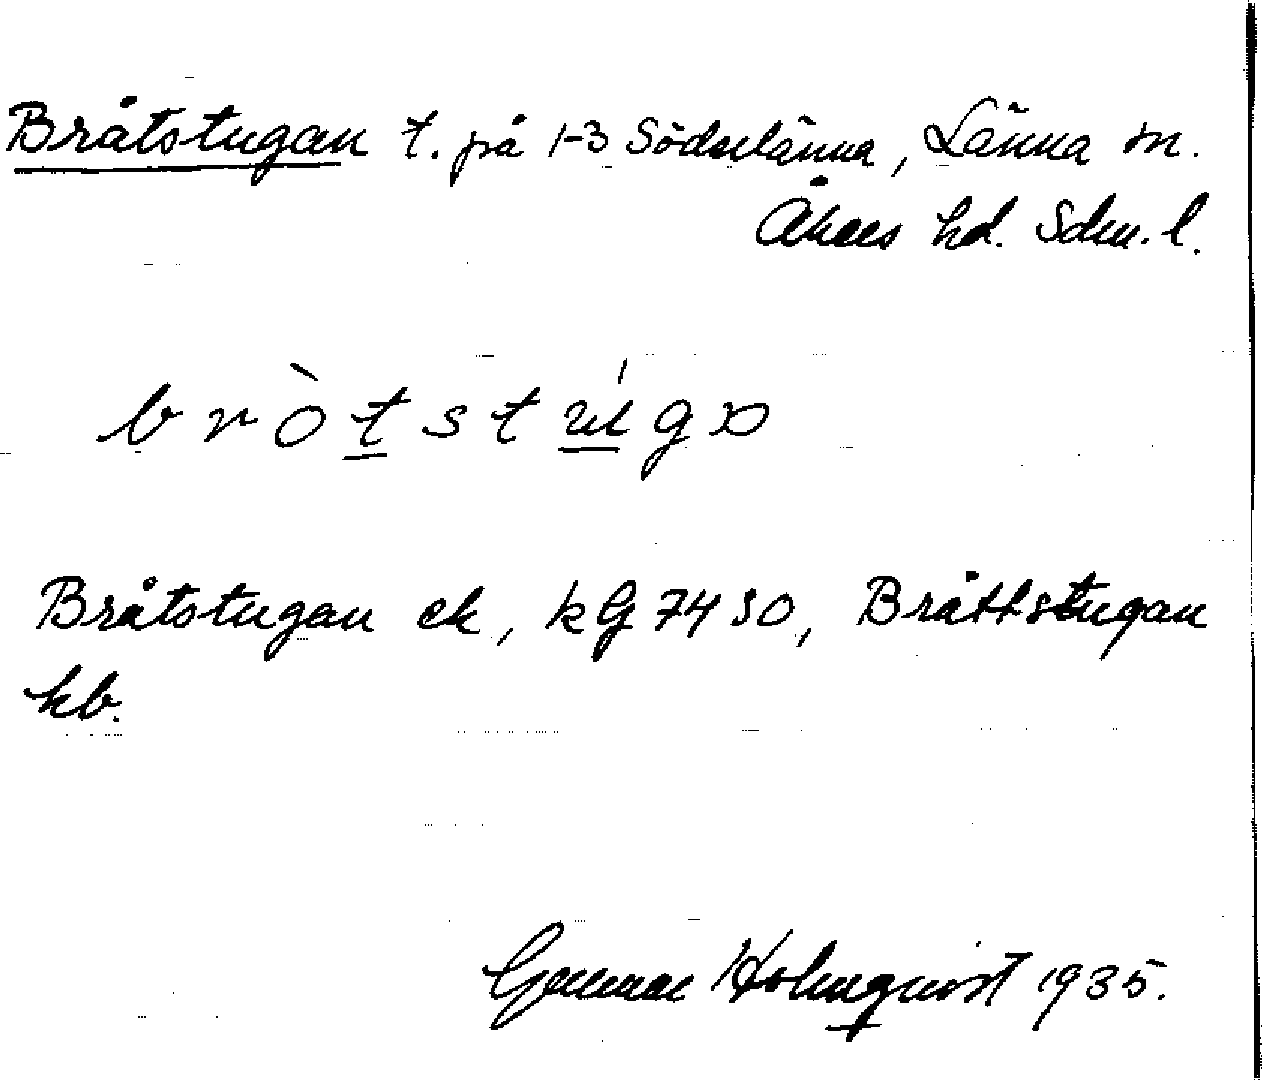 Bråtstugan t. på 1-3 Söderlänna, Länna sn.
Åkers hd. Sdm. l.
b r ò t s t ú g ω
Bråtstugan ek, kG 7430, Bråttstugan
kb.
Gunnar Holmqvist 1935.